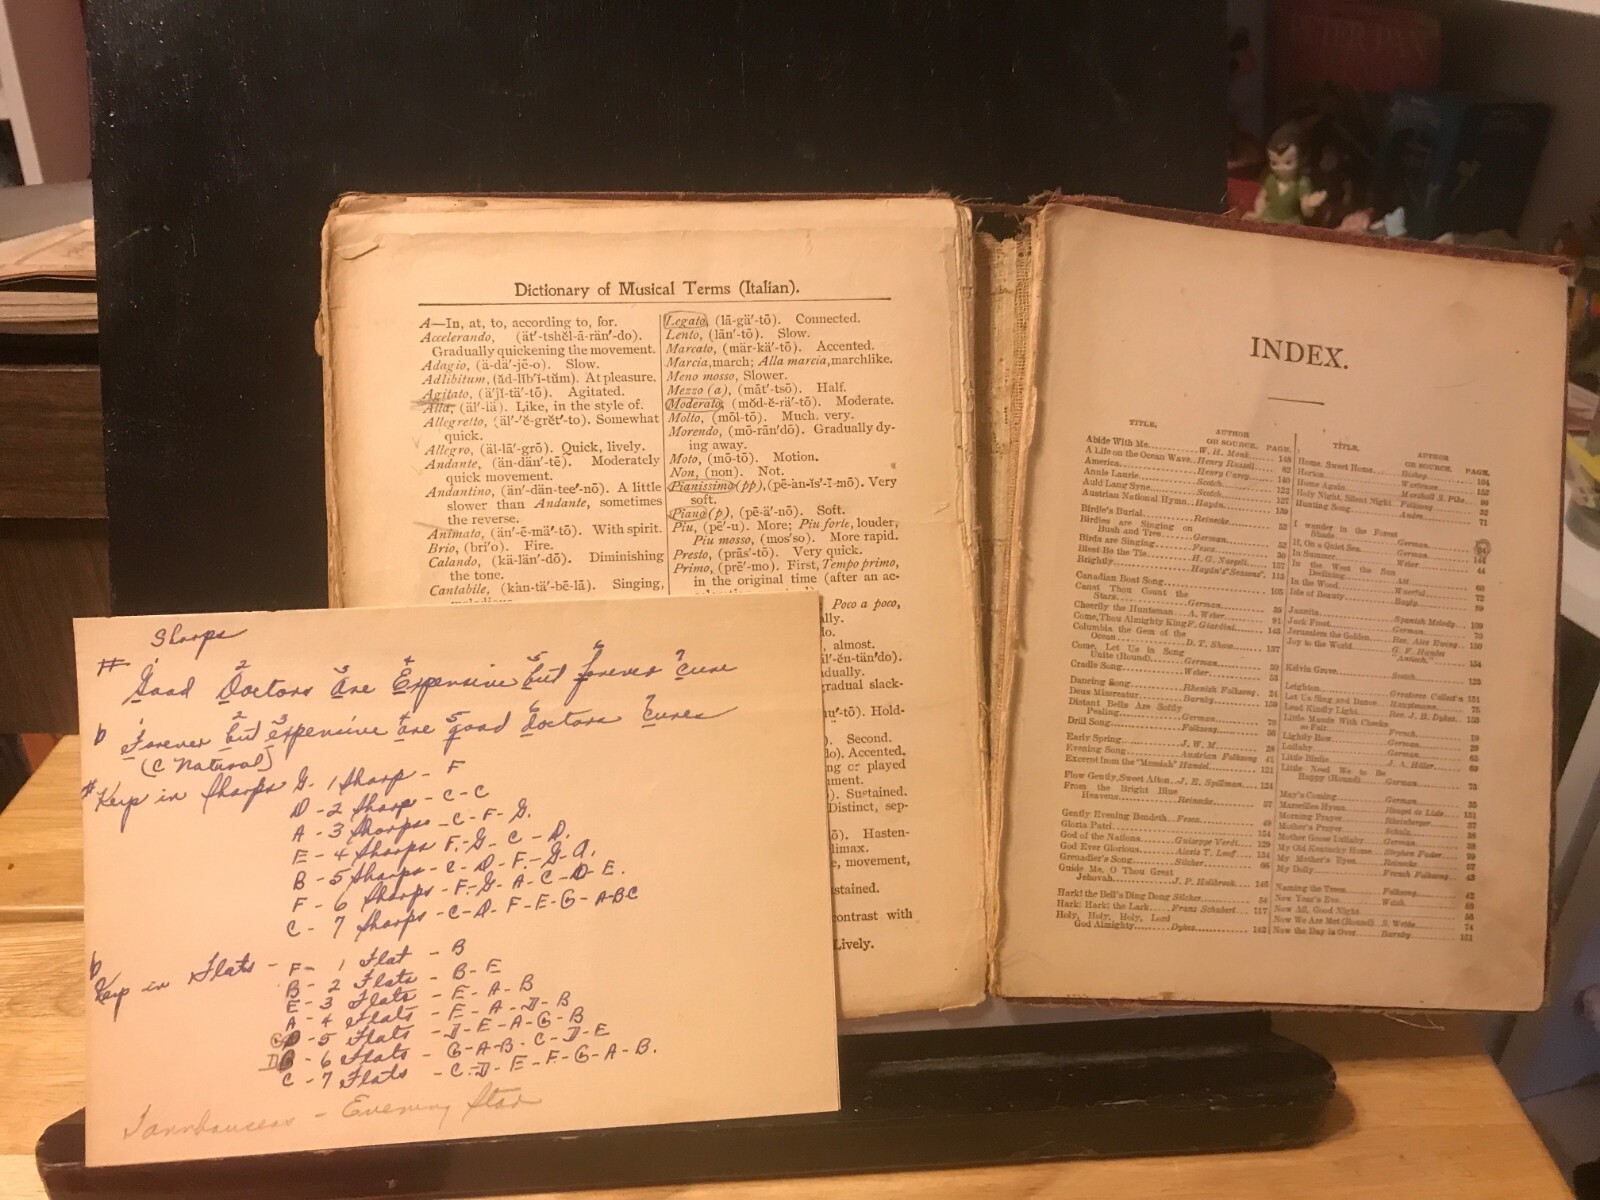 Dictionary of Musical Terms (Italian).
A—In, at, to, according to, for.
Accelerando, (ät'-tshĕl-ā-rän'-do).
Gradually quickening the movement.
Adagio, (ä-dä'-jē-o). Slow.
Adlibitum, (ăd-lĭb'ĭ-tŭm). At pleasure.
Agitato, (ä'jĭ-tä'-tō). Agitated.
Alla, (äl'-lä). Like, in the style of.
Allegretto, (äl'-'ĕ-grĕt'-to). Somewhat
quick.
Allegro, (äl-lā'-grō). Quick, lively.
Andante, (än-dän'-tē). Moderately
quick movement.
Andantino, (än'-dän-tee'-nō). A little
slower than Andante, sometimes
the reverse.
Animato, (än'-ē-mä'-tō). With spirit.
Brio, (bri'o). Fire.
Calando, (kä-län'-dō). Diminishing
the tone.
Cantabile, (kàn-tä'-bē-lā). Singing,
Legato, (lā-gä'-tō). Connected.
Lento, (lān'-tō). Slow.
Marcato, (mär-kä'-tō). Accented.
Marcia, march; Alla marcia, marchlike.
Meno mosso, Slower.
Mezzo (a), (māt'-tsō). Half.
Moderato, (mŏd-ĕ-rä'-tō). Moderate.
Molto, (mōl-tō). Much, very.
Morendo, (mō-rān'dō). Gradually dy-
ing away.
Moto, (mō-tō). Motion.
Non, (non). Not.
Pianissimo (pp), (pē-àn-ĭs'-ĭ-mō). Very
soft.
Piano (p), (pē-ä'-nō). Soft.
Piu, (pē'-u). More; Piu forte, louder,
Piu mosso, (mos'so). More rapid.
Presto, (prās'-tō). Very quick.
Primo, (prē'-mo). First, Tempo primo,
in the original time (after an ac-
Poco a poco,
almost.
gradual slack-
Hold-
Second.
Accented.
or played
Sustained.
Distinct, sep-
Hasten-
movement,
contrast with
Lively.
INDEX.
TITLE. AUTHOR OR SOURCE. PAGE.
Abide With Me W. H. Monk 148
A Life on the Ocean Wave Henry Russell 82
America Henry Carey 140
Annie Laurie Scotch 122
Auld Lang Syne Scotch 127
Austrian National Hymn Haydn 139
Birdie's Burial Reinecke 52
Birdies are Singing on
Bush and Tree German 52
Birds are Singing Fesca 30
Blest Be the Tie H. G. Naegeli 157
Brightly Haydn's "Seasons". 115
Canadian Boat Song 105
Canst Thou Count the
Stars German 39
Cheerily the Huntsman A. Weber 91
Come, Thou Almighty King F. Giardini 143
Columbia the Gem of the
Ocean D. T. Shaw 137
Come, Let Us in Song
Unite (Round) German 53
Cradle Song Weber 53
Dancing Song Rhenish Folksong 24
Deus Misereatur Barnby 159
Distant Bells Are Softly
Pealing German 79
Drill Song Folksong 56
Early Spring J. W. M 28
Evening Song Austrian Folksong 41
Excerpt from the "Messiah" Handel 121
Flow Gently, Sweet Afton J. E. Spilman 124
From the Bright Blue
Heavens Reinecke 57
Gently Evening Bendeth Fesca 49
Gloria Patri 154
God of the Nations Guiseppe Verdi 129
God Ever Glorious Alexis T. Lvoff 134
Grenadier's Song Silcher 66
Guide Me, O Thou Great
Jehovah J. P. Holbrook 146
Hark! the Bell's Ding Dong Silcher 54
Hark! Hark! the Lark Franz Schubert 117
Holy, Holy, Holy, Lord
God Almighty Dykes 142
TITLE. AUTHOR OR SOURCE. PAGE.
Home, Sweet Home Bishop
Horton
Home Again Marshall S. Pike
Holy Night, Silent Night Folksong
Hunting Song 71
I wander in the Forest
Shade German
If, On a Quiet Sea German
In Summer Weber 44
In the West the Sun
Declining
In the Wood 72
Isle of Beauty 89
Juanita Spanish Melody 109
Jack Frost German 70
Jerusalem the Golden Rev. Alex Ewing 150
Joy to the World G. F. Handel
"Antioch." 154
Kelvin Grove Scotch 125
Leighton Greatorex Collect'n 151
Let Us Sing and Dance Hauptmann 75
Lead Kindly Light Rev. J. B. Dykes 155
Little Maids With Cheeks
so Fair French 19
Lightly Row German 29
Lullaby German 65
Little Birdie J. A. Hiller 69
Little Need We to Be
Happy (Round) German 73
May's Coming German 35
Marseilles Hymn Rouget de Lisle 131
Morning Prayer Rheinberger 37
Mother's Prayer Schulz 38
Mother Goose Lullaby German 38
My Old Kentucky Home Stephen Foster 99
My Mother's Eyes Reinecke 57
My Dolly French Folksong 43
Naming the Trees Folksong 42
New Year's Eve Welsh 88
Now All, Good Night 56
Now We Are Met (Round) S. Webbe 74
Now the Day is Over Barnby 151
Sharps
# 1 2 3 4 5 6 7
Good Doctors are Expensive but forever cure
b 1 2 3 4 5 6 7
Forever but expensive are good doctors cures
(C Natural)
# Keys in Sharps G - 1 Sharp - F
D - 2 Sharp - C-C
A - 3 Sharps - C-F-G.
E - 4 Sharps F-G-C-D.
B - 5 Sharps - C-D-F-G-A.
F - 6 Sharps - F-G-A-C-D-E.
C - 7 Sharps - C-D-F-E-G-A-B-C
b
Keys in Flats - F - 1 Flat - B
B - 2 Flats - B-E
E - 3 Flats - E-A-B
A - 4 Flats - E-A-D-B
G D - 5 Flats - D-E-A-G-B
D G - 6 Flats - G-A-B-C-D-E
C - 7 Flats - C-D-E-F-G-A-B.
Tannhauser - Evening Star